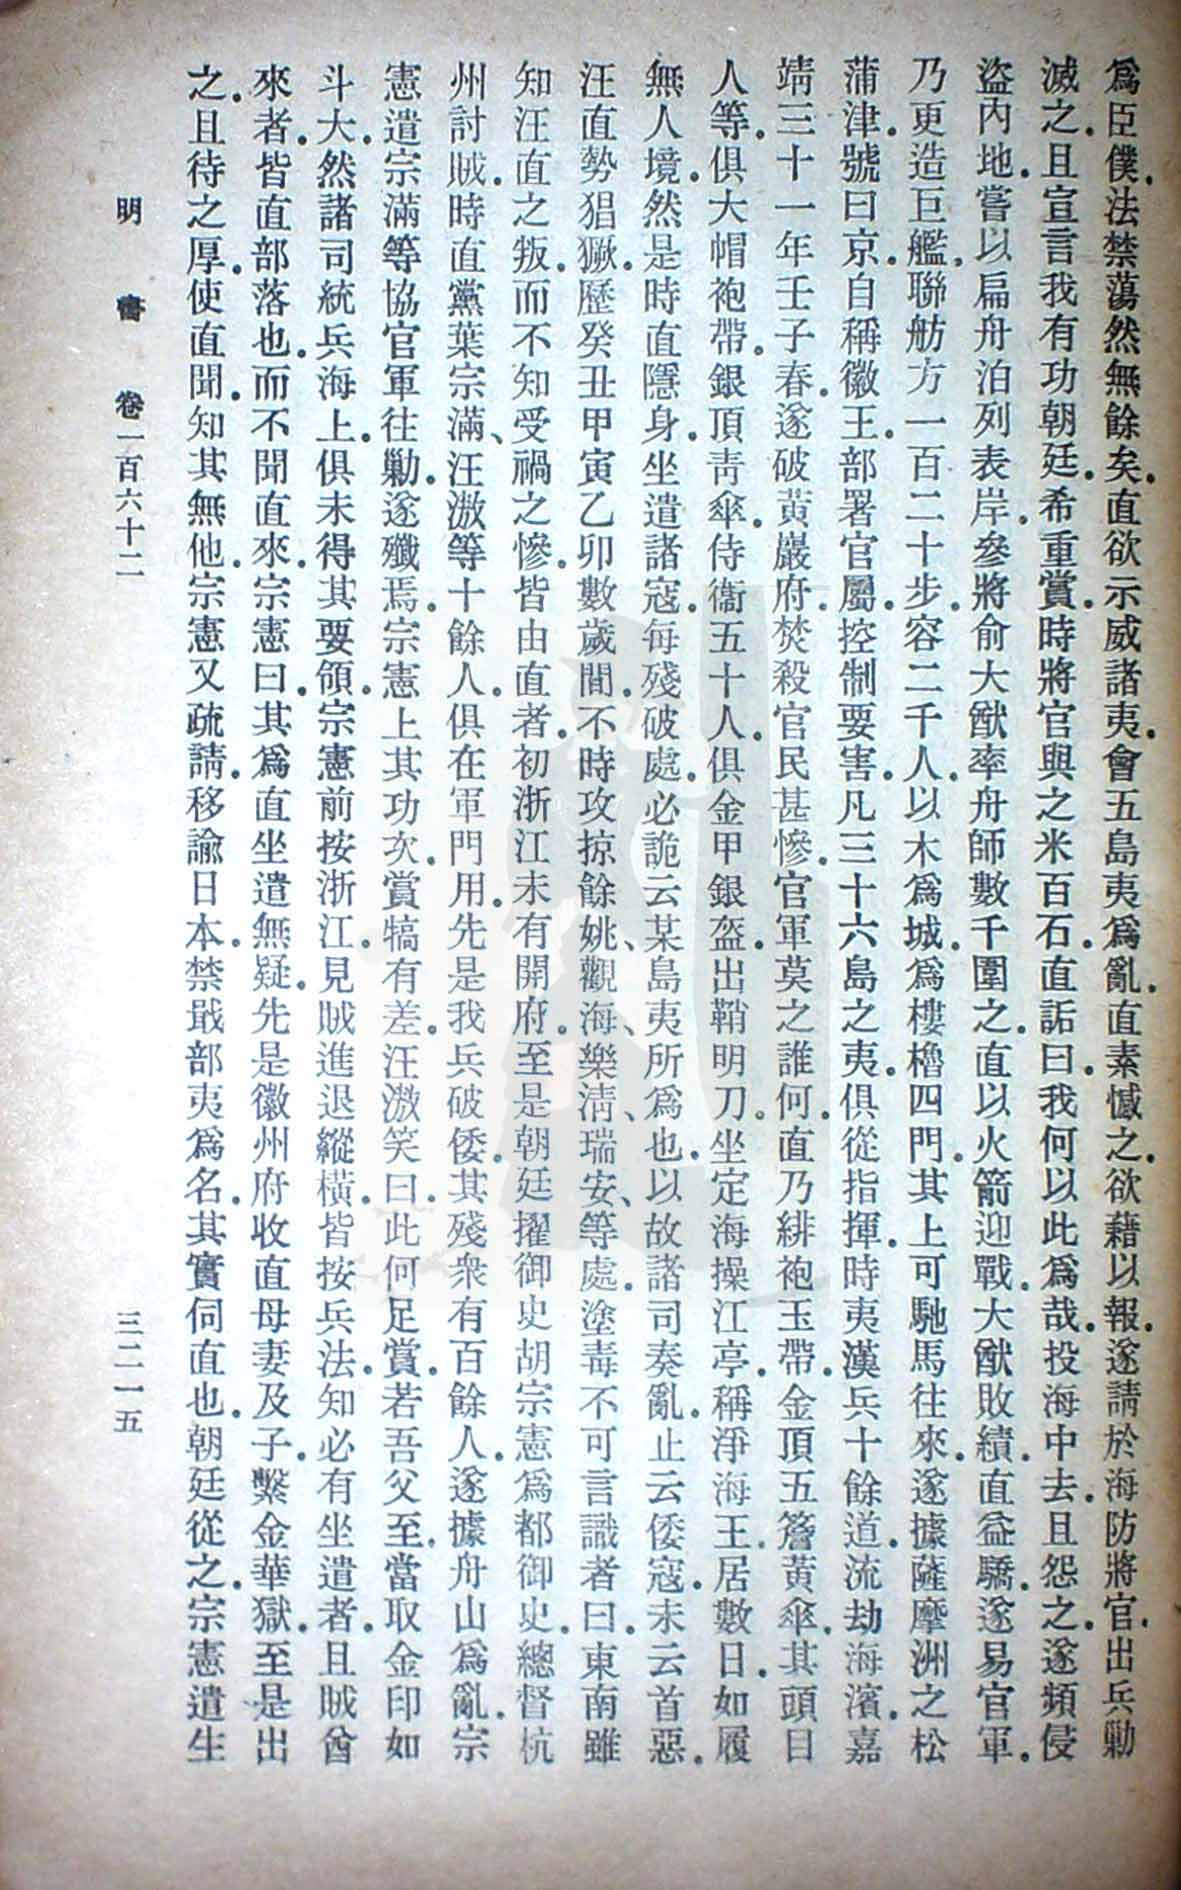 爲臣僕。法禁蕩然無餘矣。直欲示威諸夷。會五島夷爲亂。直素憾之。欲藉以報。遂請於海防將官。出兵勦
滅之。且宣言我有功朝廷。希重賞。時將官與之米百石。直詬曰。我何以此爲哉。投海中去。且怨之。遂頻侵
盜內地。嘗以扁舟泊列表岸。參將俞大猷率舟師數千圍之。直以火箭迎戰。大猷敗績。直益驕。遂易官軍。
乃更造巨艦。聯舫方一百二十步。容二千人。以木爲城。爲樓櫓四門。其上可馳馬往來。遂據薩摩洲之松
蒲津。號曰京。自稱徽王。部署官屬。控制要害。凡三十六島之夷。俱從指揮。時夷漢兵十餘道。流劫海濱。嘉
靖三十一年壬子春。遂破黃巖府。焚殺官民甚慘。官軍莫之誰何。直乃緋袍玉帶。金頂五簷黃傘。其頭目
人等。俱大帽袍帶。銀頂靑傘。侍衞五十人。俱金甲銀盔。出鞘明刀。坐定海操江亭。稱淨海王。居數日。如履
無人境。然是時直隱身。坐遣諸寇。每殘破處。必詭云某島夷所爲也。以故諸司奏亂。止云倭寇。未云首惡。
汪直勢猖獗。歷癸丑甲寅乙卯數歲間。不時攻掠餘姚、觀海、樂淸、瑞安、等處。塗毒不可言。識者曰。東南雖
知汪直之叛。而不知受禍之慘。皆由直者。初浙江未有開府。至是朝廷擢御史胡宗憲爲都御史。總督杭
州討賊。時直黨葉宗滿、汪滶等十餘人。俱在軍門用。先是我兵破倭。其殘衆有百餘人。遂據舟山爲亂。宗
憲遣宗滿等協官軍往勦。遂殲焉。宗憲上其功次。賞犒有差。汪滶笑曰。此何足賞。若吾父至。當取金印如
斗大。然諸司統兵海上。俱未得其要領。宗憲前按浙江。見賊進退縱橫。皆按兵法。知必有坐遣者。且賊酋
來者。皆直部落也。而不聞直來。宗憲曰。其爲直坐遣無疑。先是徽州府收直母妻及子。繫金華獄。至是出
之。且待之厚。使直聞。知其無他。宗憲又疏請。移諭日本。禁戢部夷爲名。其實伺直也。朝廷從之。宗憲遣生
明書 卷一百六十二 三二一五